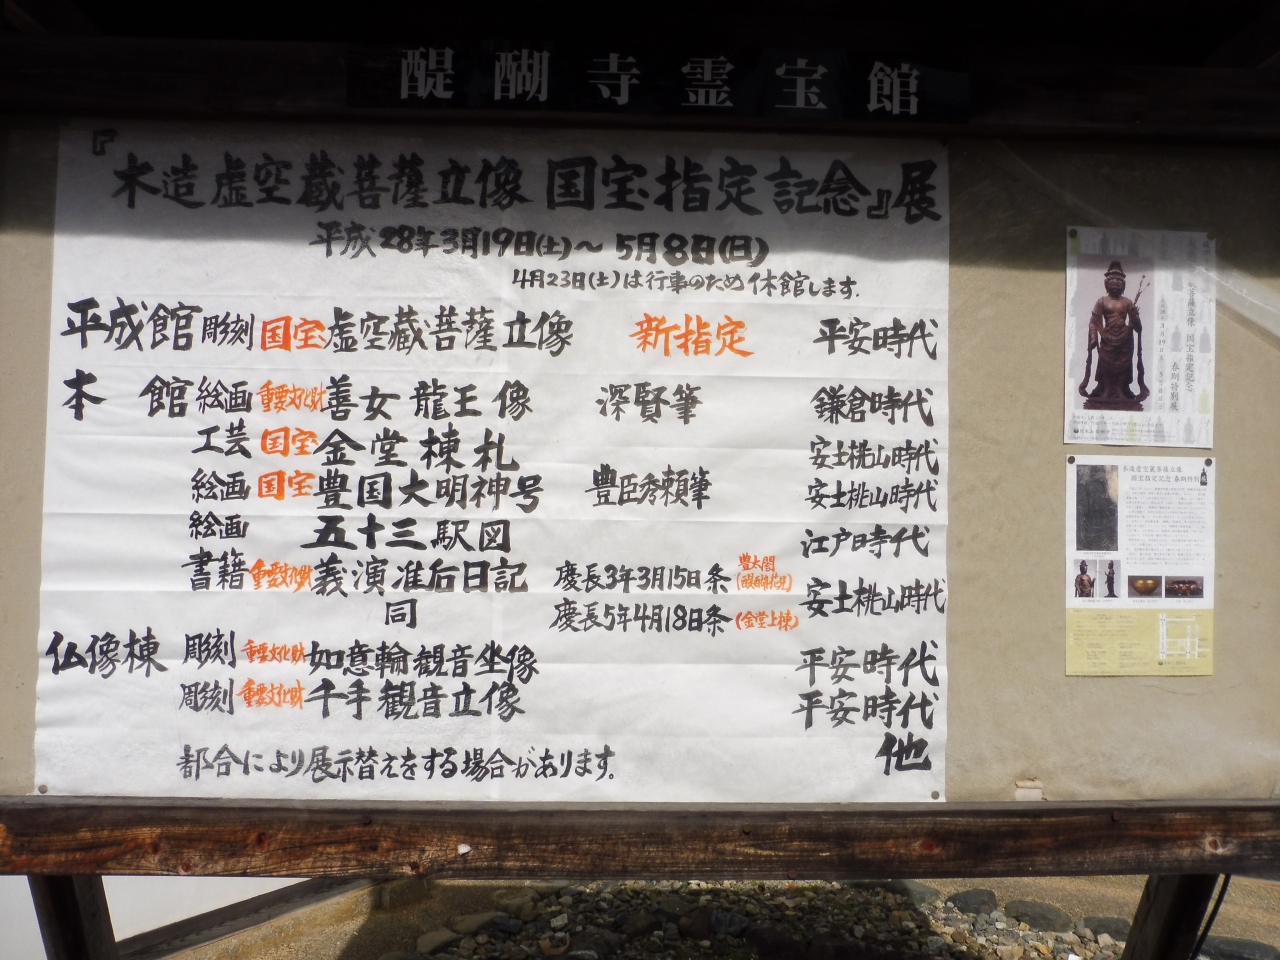 醍醐寺霊宝館
『木造虚空蔵菩薩立像 国宝指定記念』展
平成28年3月19日(土)～5月8日(日)
4月23日(土)は行事のため休館します.
平成館 彫刻 国宝 虚空蔵菩薩立像 新指定 平安時代
本館 絵画 重要文化財 善女龍王像 深賢筆 鎌倉時代
工芸 国宝 金堂棟札 安土桃山時代
絵画 国宝 豊国大明神号 豊臣秀頼筆 安土桃山時代
絵画 五十三駅図 江戸時代
書籍 重要文化財 義演准后日記 慶長3年3月15日条 豊太閤(醍醐花見) 安土桃山時代
同 慶長5年4月18日条 (金堂上棟)
仏像棟 彫刻 重要文化財 如意輪観音坐像 平安時代
彫刻 重要文化財 千手観音立像 平安時代
他
都合により展示替えをする場合があります.
国宝指定記念
春期特別展
木造虚空蔵菩薩立像
国宝指定記念 春期特別